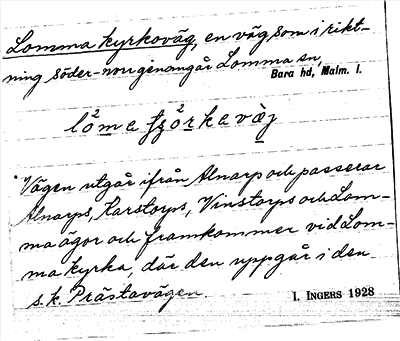 Lomma kyrkoväg, en väg som i rikt-
ning söder-norr genomgår Lomma sn,
Bara hd, Malm. l.
Vägen utgår ifrån Alnarp och passerar
Alnarps, Karstorps, Vinstorps och Lom-
ma ägor och framkommer vid Lom-
ma kyrka, där den uppgår i den
s.k. Prästavägen.
I. INGERS 1928